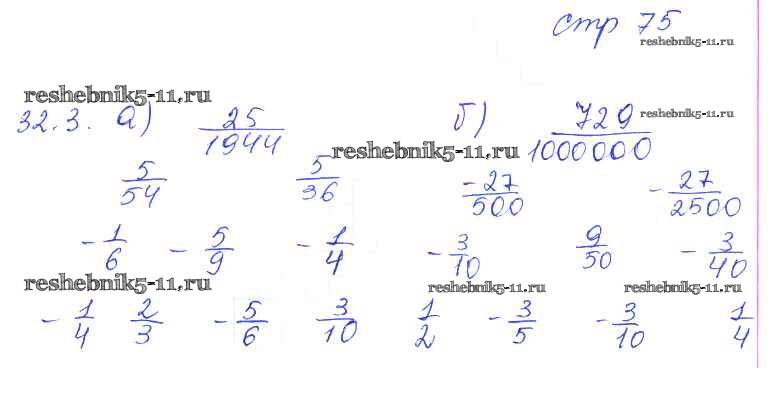 стр 75
reshebnik5-11.ru
reshebnik5-11.ru
32.3. а) 25/1944 б) 729/1000000 reshebnik5-11.ru
reshebnik5-11.ru
5/54 5/36 -27/500 -27/2500
-1/6 -5/9 -1/4 -3/10 9/50 -3/40
reshebnik5-11.ru reshebnik5-11.ru reshebnik5-11.ru
-1/4 2/3 -5/6 3/10 1/2 -3/5 -3/10 1/4